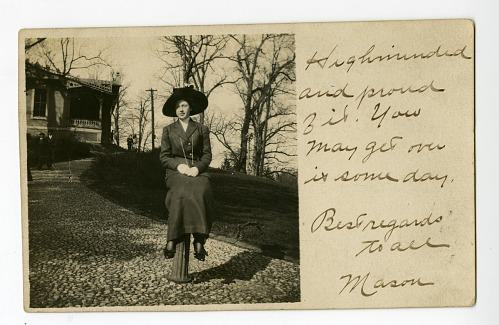 Highminded
and proud
of it. You
may get over
it some day.
Best regards
to all
Mason